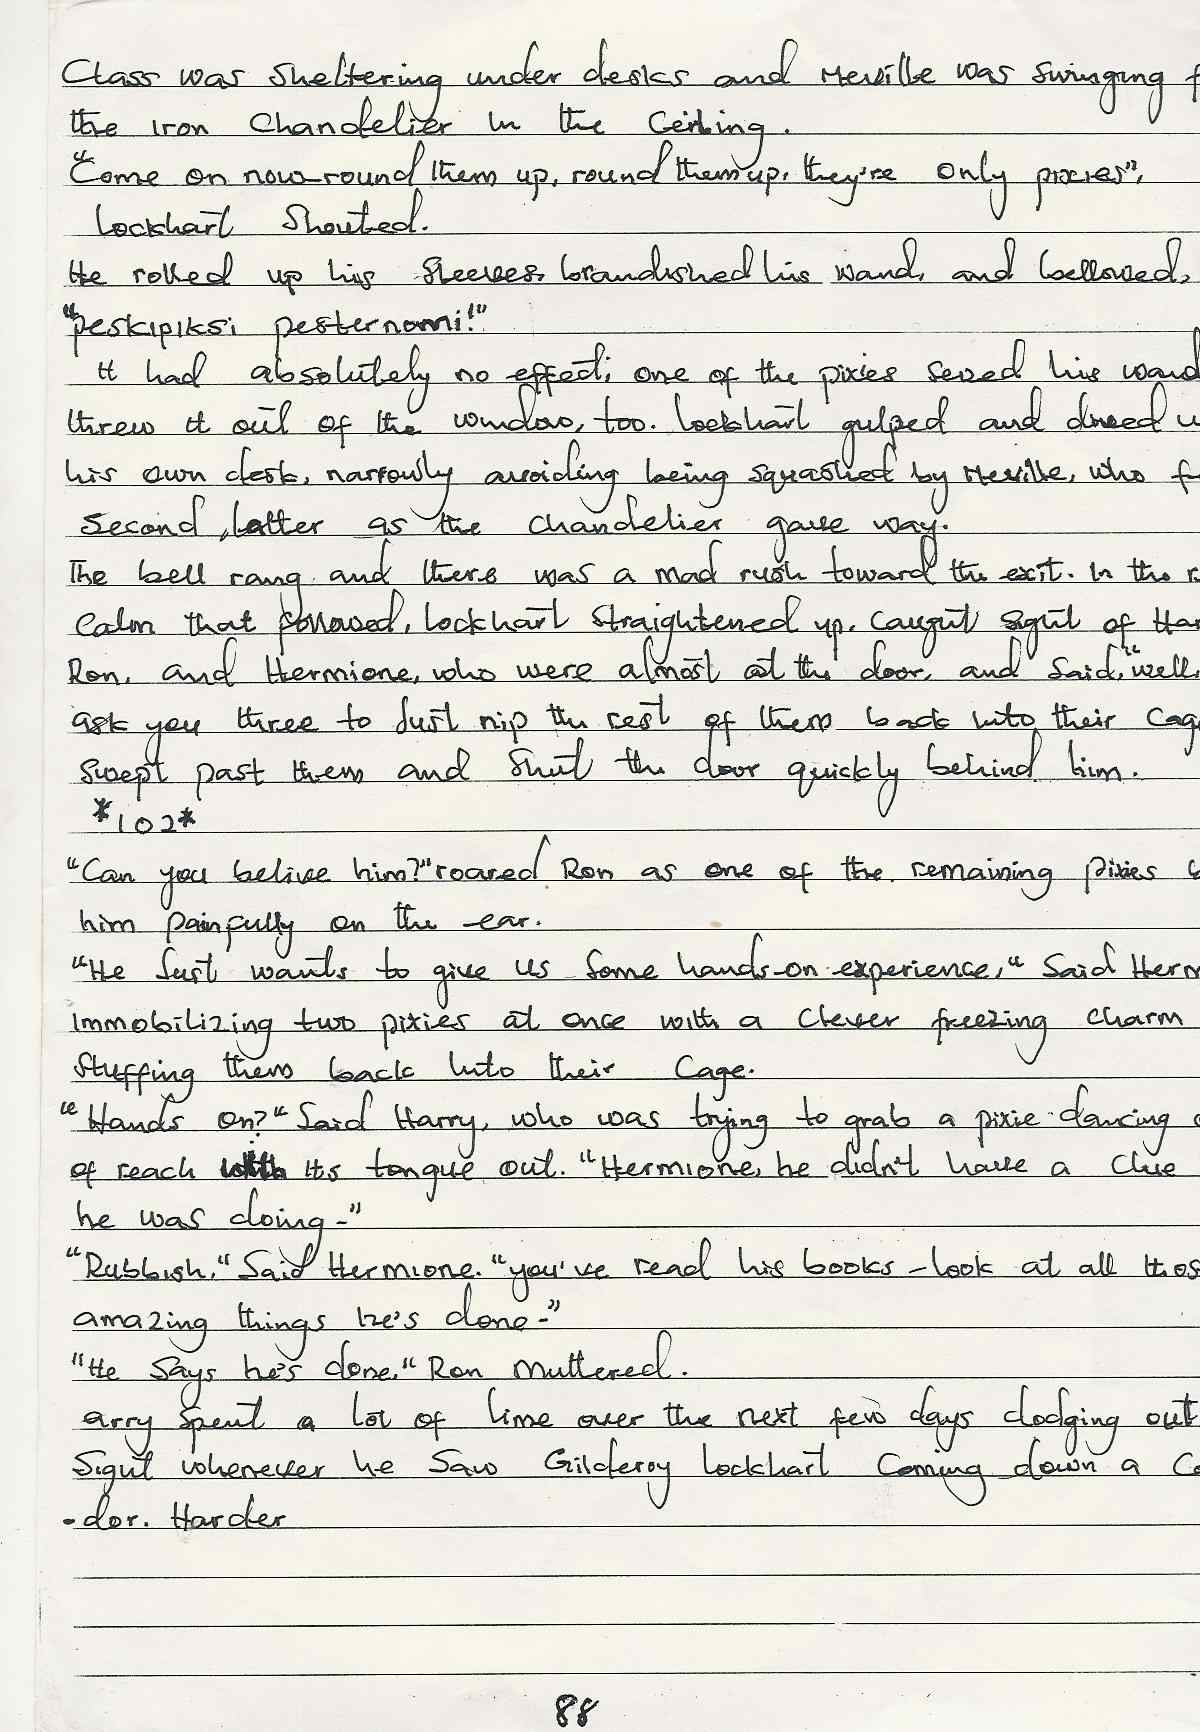 Class was sheltering under desks and Neville was swinging f
the Iron Chandelier in the Ceiling.
"Come on now-round them up, round them up, they're only pixies",
Lockhart Shouted.
He rolled up his sleeves, brandished his wand, and bellowed,
"peskipiksi pesternomi!"
It had absolutely no effect; one of the pixies sezed his wand
threw it out of the window, too. Lockhart gulped and dived u
his own desk, narrowly avoiding being squashed by Neville, who f
Second, latter as the chandelier gave way.
The bell rang and there was a mad rush toward the exit. In the r
Calm that followed, Lockhart Straightened up, caught sight of Har
Ron, and Hermione, who were almost at the door, and Said, "well,
ask you three to Just nip the rest of them back into their Cag
Swept past them and Shut the door quickly behind him.
*102*
"Can you belive him?" roared Ron as one of the remaining pixies b
him painfully on the ear.
"He Just wants to give us Some hands-on-experience," Said Herm
Immobilizing two pixies at once with a Clever freezing Charm
Stuffing them back into their Cage.
"Hands on?" Said Harry, who was trying to grab a pixie dancing o
of reach with its tongue out. "Hermione, he didn't have a Clue
he was doing-"
"Rubbish," Said Hermione. "you've read his books - look at all thos
amazing things he's done-"
"He Says he's done," Ron Muttered.
arry Spent a lot of time over the next few days dodging out
Sight whenever he Saw Gilderoy Lockhart Coming down a Co
-dor. Harder
88